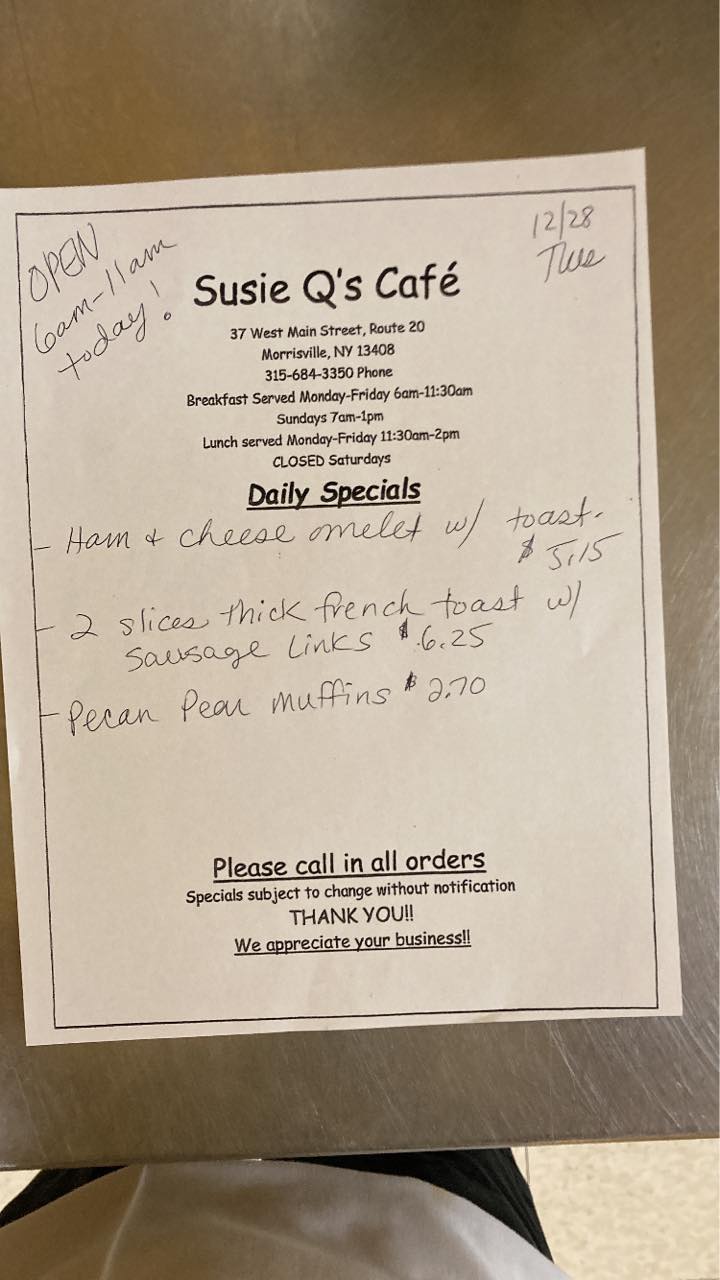 OPEN
6am-11am
today!
12/28
Tues
Susie Q's Café
37 West Main Street, Route 20
Morrisville, NY 13408
315-684-3350 Phone
Breakfast Served Monday-Friday 6am-11:30am
Sundays 7am-1pm
Lunch served Monday-Friday 11:30am-2pm
CLOSED Saturdays
Daily Specials
- Ham & cheese omelet w/ toast.
$ 5.15
- 2 slices thick french toast w/
Sausage Links $6.25
- Pecan Pear muffins $2.70
Please call in all orders
Specials subject to change without notification
THANK YOU!!
We appreciate your business!!